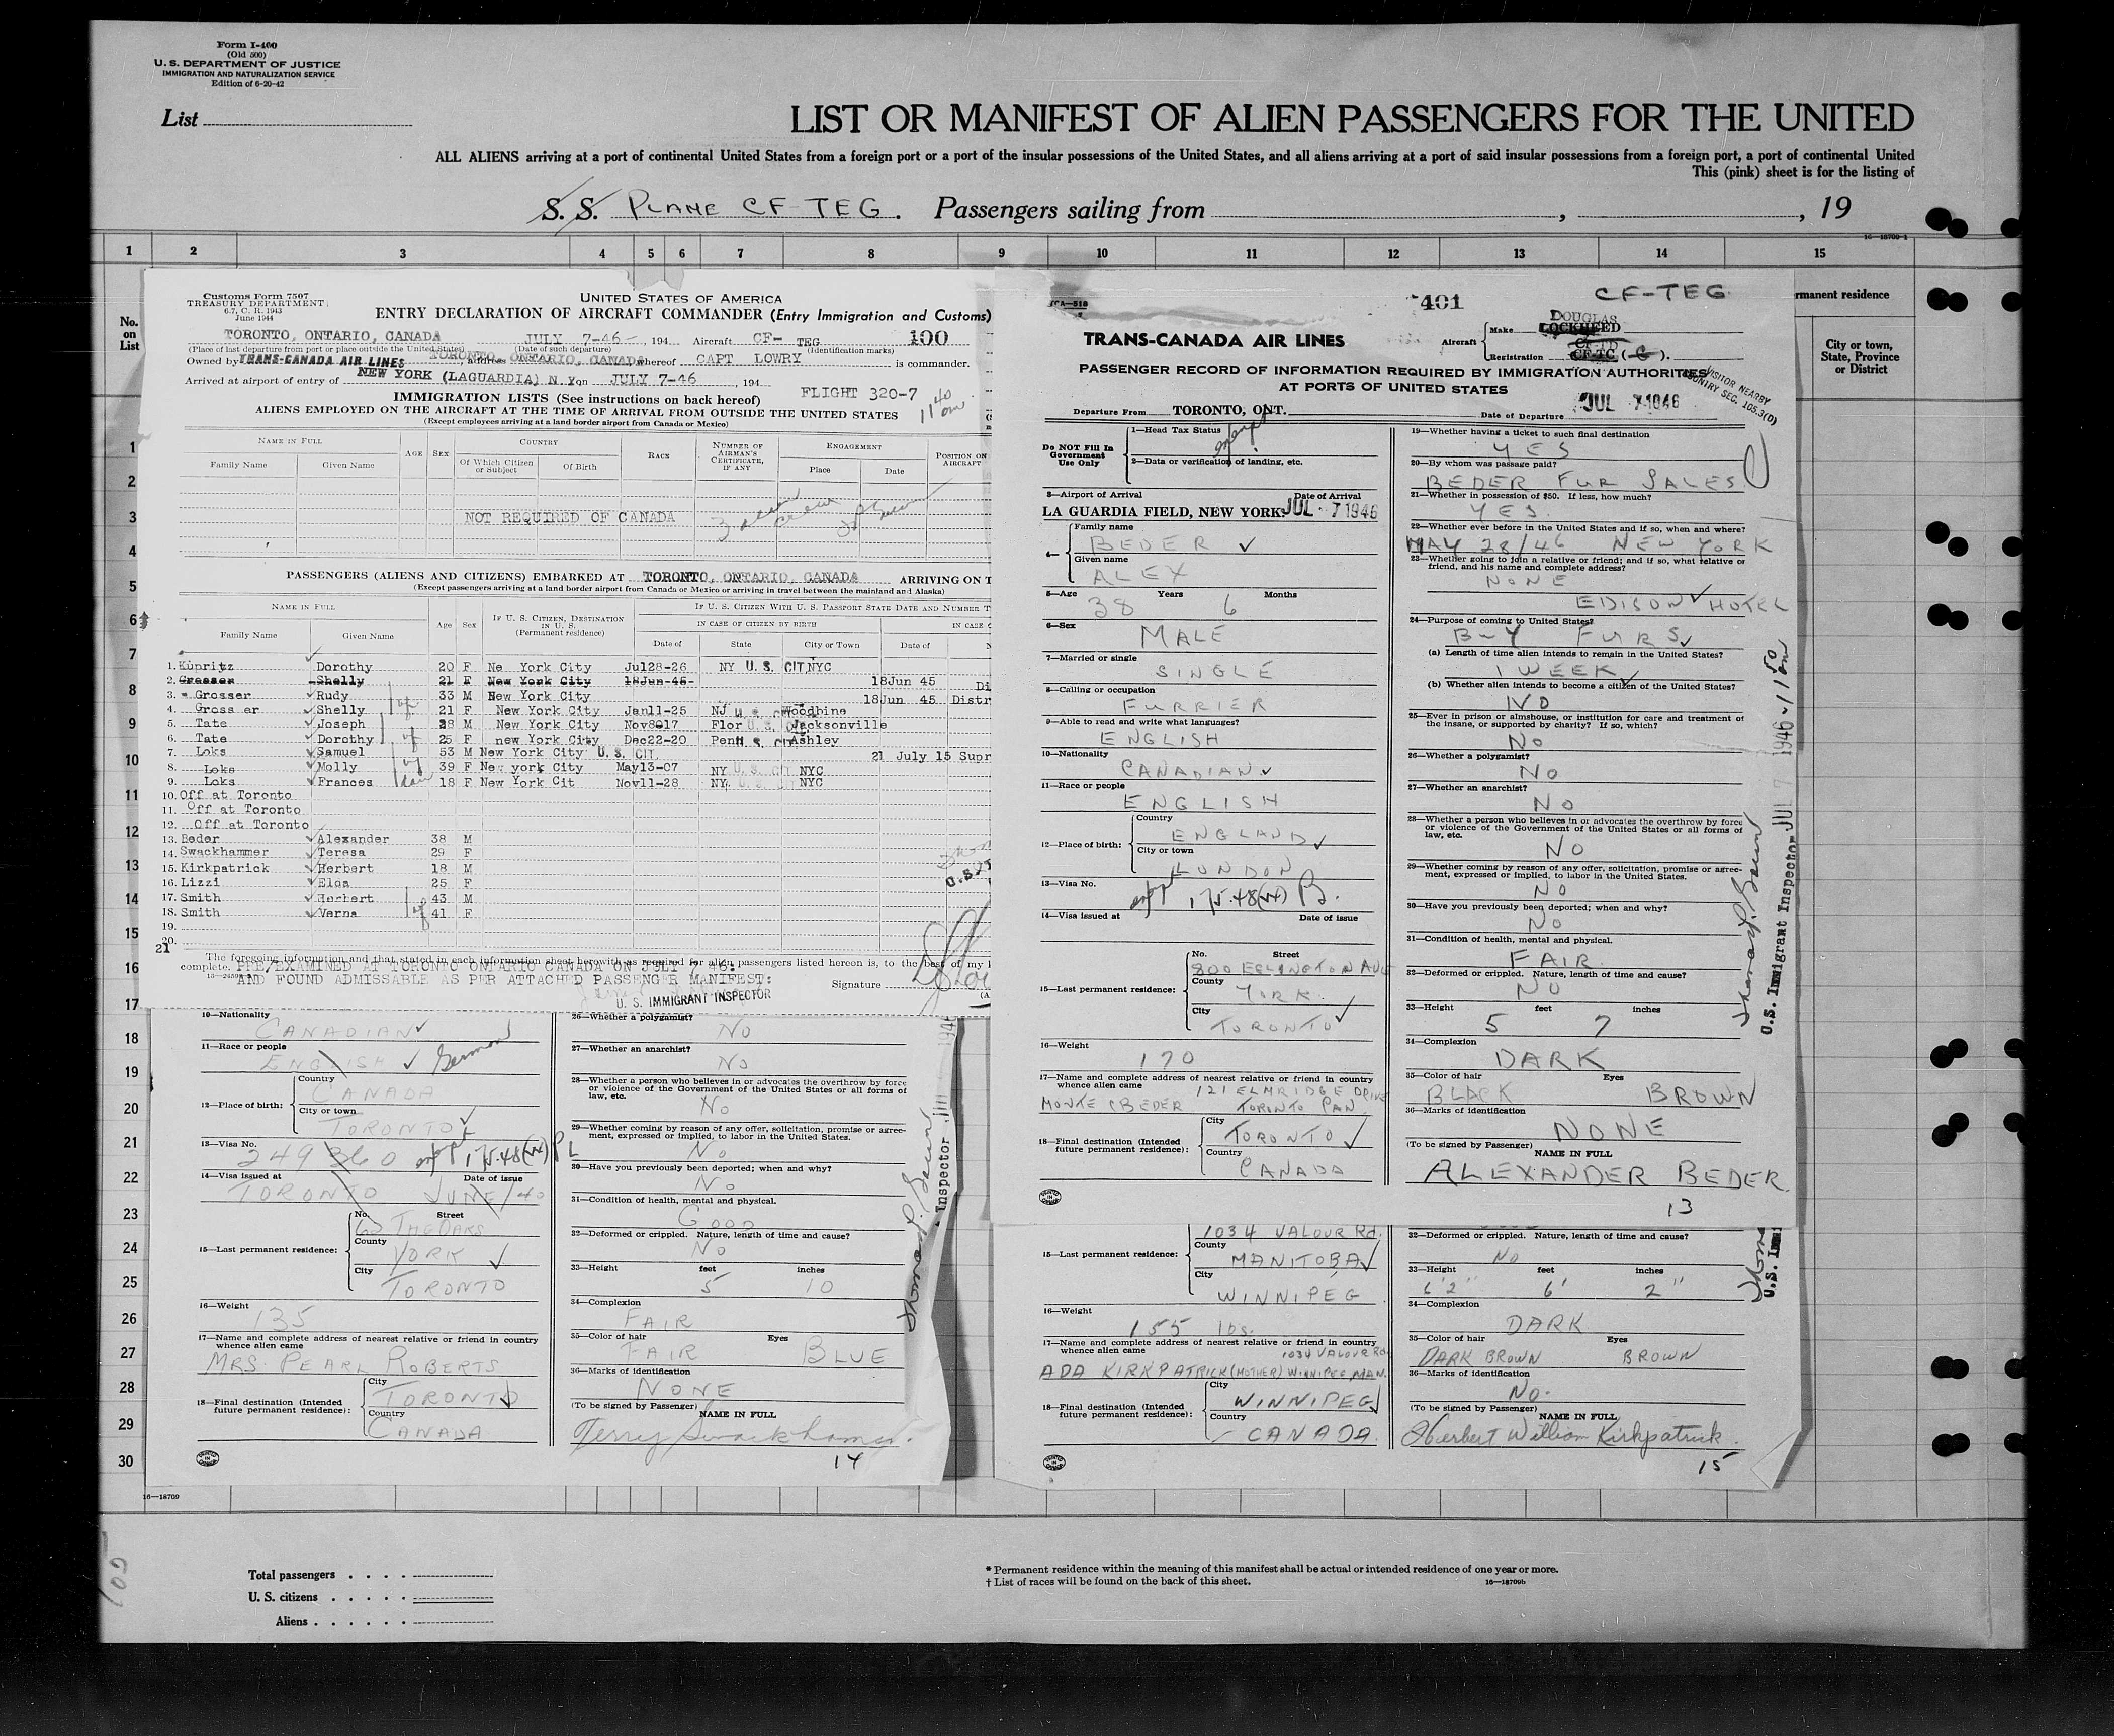 Form I-400
(Old 500)
U. S. DEPARTMENT OF JUSTICE
IMMIGRATION AND NATURALIZATION SERVICE
Edition of 6-20-42
List
LIST OR MANIFEST OF ALIEN PASSENGERS FOR THE UNITED
ALL ALIENS arriving at a port of continental United States from a foreign port or a port of the insular possessions of the United States, and all aliens arriving at a port of said insular possessions from a foreign port, a port of continental United
This (pink) sheet is for the listing of
S. S. PLANE CF-TEG. Passengers sailing from , , 19
16-18709-1
1 2 3 4 5 6 7 8 9 10 11 12 13 14 15
No. on List
rmanent residence
City or town, State, Province or District
Customs Form 7507
TREASURY DEPARTMENT
6.7, C. R. 1943
June 1944
UNITED STATES OF AMERICA
ENTRY DECLARATION OF AIRCRAFT COMMANDER (Entry Immigration and Customs)
TORONTO, ONTARIO, CANADA JULY 7-46- , 194 Aircraft CF- TEG 100
(Place of last departure from port or place outside the United States) (Date of such departure) (Identification marks)
Owned by TRANS-CANADA AIR LINES address TORONTO, ONTARIO, CANADA whereof CAPT LOWRY is commander.
Arrived at airport of entry of NEW YORK (LAGUARDIA) N Y on JULY 7-46 , 194
IMMIGRATION LISTS (See instructions on back hereof) FLIGHT 320-7
11 40 am
ALIENS EMPLOYED ON THE AIRCRAFT AT THE TIME OF ARRIVAL FROM OUTSIDE THE UNITED STATES
(Except employees arriving at a land border airport from Canada or Mexico)
NAME IN FULL AGE SEX COUNTRY RACE NUMBER OF AIRMAN'S CERTIFICATE, IF ANY ENGAGEMENT POSITION ON AIRCRAFT
Family Name Given Name Of Which Citizen or Subject Of Birth Place Date
NOT REQUIRED OF CANADA
3 alien crew
PASSENGERS (ALIENS AND CITIZENS) EMBARKED AT TORONTO, ONTARIO, CANADA ARRIVING ON T
(Except passengers arriving at a land border airport from Canada or Mexico or arriving in travel between the mainland and Alaska)
NAME IN FULL Age Sex IF U. S. CITIZEN, DESTINATION IN U. S. (Permanent residence) IF U. S. CITIZEN WITH U. S. PASSPORT STATE DATE AND NUMBER T
IN CASE OF CITIZEN BY BIRTH IN CASE
Family Name Given Name Date of State City or Town Date of
1. Kupritz Dorothy 20 F Ne York City Jul28-26 NY U. S. CIT NYC
2. Grosser Shelly 21 F New York City 18Jun-45- 18Jun 45 Di
3. Grosser Rudy 33 M New York City 18Jun 45 Distr
4. Gross er Shelly 21 F New York City Jan11-25 NJ U S C Woodbine
5. Tate Joseph 28 M New York City Nov8017 Flor U. S. Jacksonville
6. Tate Dorothy 25 F new York City Dec22-20 Penn Ashley
7. Loks Samuel 53 M New York City U. S. CIT. 21 July 15 Supr
8. Loks Molly 39 F New york City May13-07 NY U. S. CIT NYC
9. Loks Frances 18 F New York Cit Nov11-28 NY. U. S. CIT NYC
10. Off at Toronto
11. Off at Toronto
12. Off at Toronto
13. Beder Alexander 38 M
14. Swackhammer Teresa 29 F
15. Kirkpatrick Herbert 18 M
16. Lizzi Eloa 25 F
17. Smith Herbert 43 M
18. Smith Verna 41 F
19.
20.
21
The foregoing information and that stated in each information sheet herewith as required for alien passengers listed hereon is, to the best of my
complete.
PRE/EXAMINED AT TORONTO ONTARIO CANADA ON JULY 7 46:
AND FOUND ADMISSABLE AS PER ATTACHED PASSENGER MANIFEST:
Signature
U. S. IMMIGRANT INSPECTOR
10—Nationality
CANADIAN
11—Race or people
ENGLISH German
12—Place of birth:
Country
CANADA
City or town
TORONTO
13—Visa No.
249360 175.48(VV)
14—Visa issued at Date of issue
TORONTO JUNE/40
15—Last permanent residence:
No. Street
62 THE OAKS
County
YORK
City
TORONTO
16—Weight
135
17—Name and complete address of nearest relative or friend in country whence alien came
MRS. PEARL ROBERTS
18—Final destination (Intended future permanent residence):
City
TORONTO
Country
CANADA
26—Whether a polygamist?
NO
27—Whether an anarchist?
NO
28—Whether a person who believes in or advocates the overthrow by force or violence of the Government of the United States or all forms of law, etc.
NO
29—Whether coming by reason of any offer, solicitation, promise or agreement, expressed or implied, to labor in the United States.
NO
30—Have you previously been deported; when and why?
NO
31—Condition of health, mental and physical.
GOOD
32—Deformed or crippled. Nature, length of time and cause?
NO
33—Height feet inches
5 10
34—Complexion
FAIR
35—Color of hair Eyes
FAIR BLUE
36—Marks of identification
NONE
(To be signed by Passenger) NAME IN FULL
Terry Swackhamer.
14
Inspector
TCA—518
401
CF-TEG
TRANS-CANADA AIR LINES
Aircraft Make DOUGLAS LOCKHEED
Registration CF-TD CF-TC (G).
PASSENGER RECORD OF INFORMATION REQUIRED BY IMMIGRATION AUTHORITIES
AT PORTS OF UNITED STATES
VISITOR NEARBY
COUNTRY SEC. 105.3(D)
Departure From TORONTO, ONT. Date of Departure JUL 7 1946
Do NOT Fill In Government Use Only
1—Head Tax Status
exempt
2—Data or verification of landing, etc.
3—Airport of Arrival Date of Arrival
LA GUARDIA FIELD, NEW YORK JUL 7 1946
4—
Family name
BEDER
Given name
ALEX
5—Age Years Months
38 6
6—Sex
MALE
7—Married or single
SINGLE
8—Calling or occupation
FURRIER
9—Able to read and write what languages?
ENGLISH
10—Nationality
CANADIAN
11—Race or people
ENGLISH
12—Place of birth:
Country
ENGLAND
City or town
LONDON
13—Visa No.
175.48(VV) B.
14—Visa issued at Date of issue
15—Last permanent residence:
No. Street
800 EGLINGTON AVE
County
YORK
City
TORONTO
16—Weight
170
17—Name and complete address of nearest relative or friend in country whence alien came
121 ELMRIDGE DRIVE
MONTE BEDER TORONTO
18—Final destination (Intended future permanent residence):
City
TORONTO
Country
CANADA
19—Whether having a ticket to such final destination
YES
20—By whom was passage paid?
BEDER FUR SALES
21—Whether in possession of $50. If less, how much?
YES.
22—Whether ever before in the United States and if so, when and where?
MAY 28/46 NEW YORK
23—Whether going to join a relative or friend; and if so, what relative or friend, and his name and complete address?
NONE
EDISON HOTEL
24—Purpose of coming to United States?
BUY FURS
(a) Length of time alien intends to remain in the United States?
1 WEEK
(b) Whether alien intends to become a citizen of the United States?
NO
25—Ever in prison or almshouse, or institution for care and treatment of the insane, or supported by charity? If so, which?
NO
26—Whether a polygamist?
NO
27—Whether an anarchist?
NO
28—Whether a person who believes in or advocates the overthrow by force or violence of the Government of the United States or all forms of law, etc.
NO
29—Whether coming by reason of any offer, solicitation, promise or agreement, expressed or implied, to labor in the United States.
NO
30—Have you previously been deported; when and why?
NO
31—Condition of health, mental and physical.
FAIR
32—Deformed or crippled. Nature, length of time and cause?
NO
33—Height feet inches
5 7
34—Complexion
DARK
35—Color of hair Eyes
BLACK BROWN
36—Marks of identification
NONE
(To be signed by Passenger) NAME IN FULL
ALEXANDER BEDER.
13
U.S. Immigrant Inspector JUL 7 1946 - 11 50 am
15—Last permanent residence:
1034 VALOUR Rd.
County
MANITOBA
City
WINNIPEG
16—Weight
155 lbs.
17—Name and complete address of nearest relative or friend in country whence alien came
1034 VALOUR RD
ADA KIRKPATRICK (MOTHER) WINNIPEG MAN.
18—Final destination (Intended future permanent residence):
City
WINNIPEG
Country
CANADA.
32—Deformed or crippled. Nature, length of time and cause?
NO
33—Height feet inches
6'2" 6' 2"
34—Complexion
DARK
35—Color of hair Eyes
DARK BROWN BROWN
36—Marks of identification
NO.
(To be signed by Passenger) NAME IN FULL
Herbert William Kirkpatrick.
15
1
2
3
4
5
6
7
8
9
10
11
12
13
14
15
16
17
18
19
20
21
22
23
24
25
26
27
28
29
30
16—18709
Total passengers
U. S. citizens
Aliens
* Permanent residence within the meaning of this manifest shall be actual or intended residence of one year or more.
† List of races will be found on the back of this sheet. 16—18709b